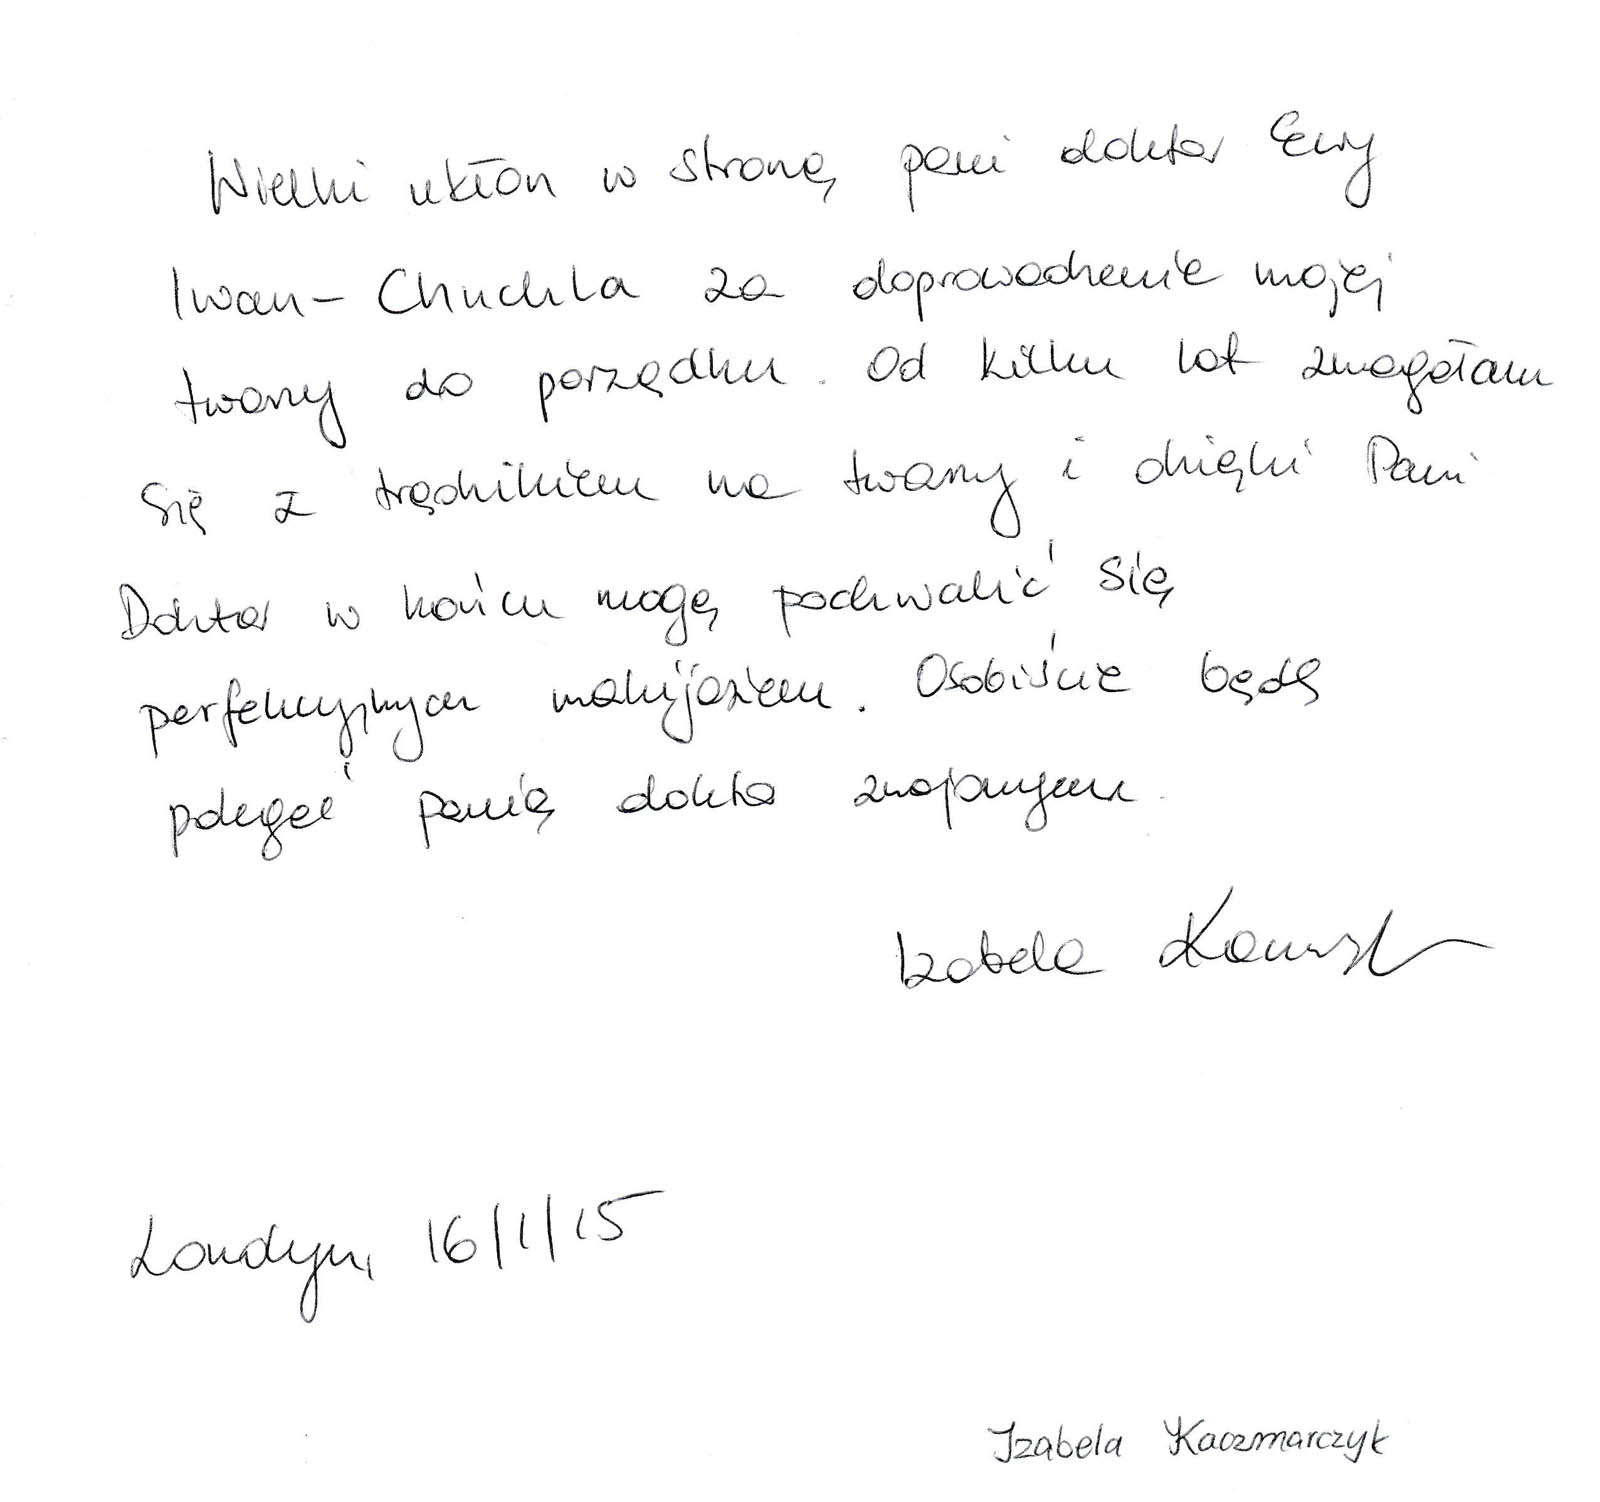 Wielki ukłon w stronę pani doktor Ewy
Iwan-Chuchla za doprowadzenie mojej
twarzy do porządku. Od kilku lat zmagałam
się z trądzikiem na twarzy i dzięki Pani
Doktor w końcu mogę pochwalić się
perfekcyjnym makijażem. Osobiście będę
polegać panią doktor znajomym.
Izabela
Londyn, 16/1/15
Izabela Kaczmarczyk